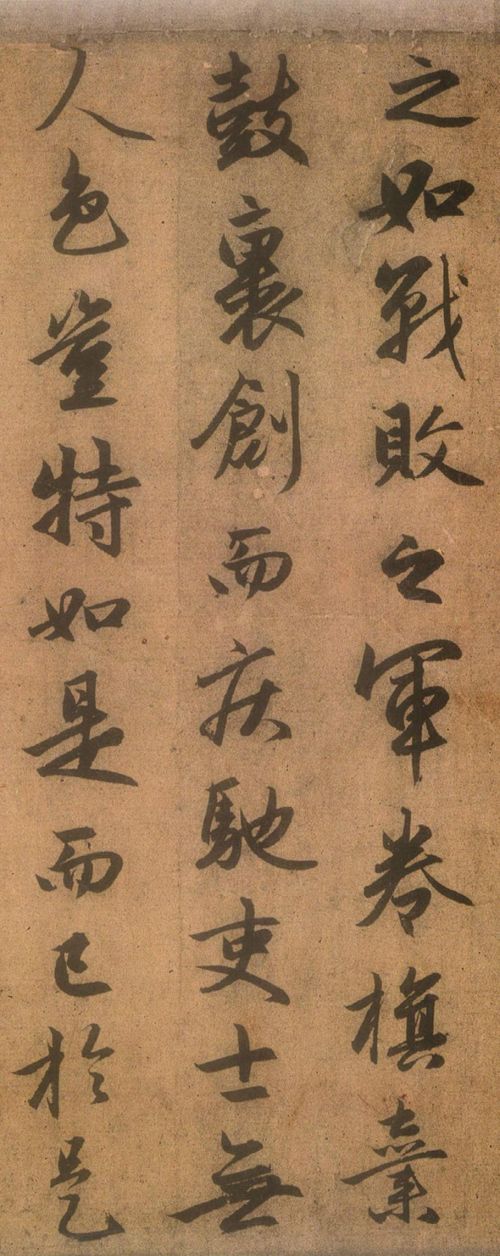 之如戰敗之軍卷旗棄
鼓裹創而疾馳吏士無
人色豈特如是而已於是